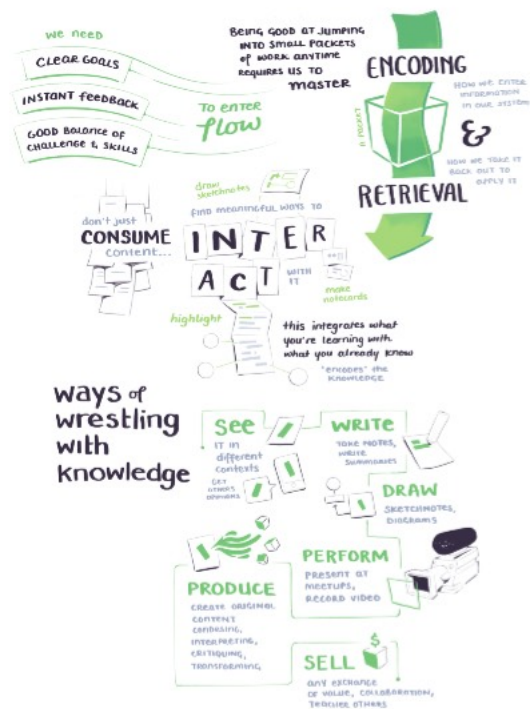 we need
CLEAR GOALS
INSTANT FEEDBACK
GOOD BALANCE OF
CHALLENGE & SKILLS
TO ENTER
flow
BEING GOOD AT JUMPING
INTO SMALL PACKETS
OF WORK ANYTIME
REQUIRES US TO
MASTER
ENCODING
HOW WE ENTER
INFORMATION
IN OUR SYSTEM
A PACKET
&
HOW WE TAKE IT
BACK OUT TO
APPLY IT
RETRIEVAL
don't just
CONSUME
content...
draw
sketchnotes
FIND MEANINGFUL WAYS TO
INTER
ACT
WITH
IT
make
notecards
highlight
this integrates what
you're learning with
what you already know
"encodes" the
KNOWLEDGE
ways of
wrestling
with
knowledge
SEE
IT IN
different
contexts
GET
OTHERS
OPINIONS
WRITE
TAKE NOTES,
WRITE
SUMMARIES
DRAW
SKETCHNOTES,
DIAGRAMS
PERFORM
PRESENT AT
MEETUPS,
RECORD VIDEO
PRODUCE
CREATE ORIGINAL
CONTENT
CONDENSING,
INTERPRETING,
CRITIQUING,
TRANSFORMING
SELL
$
ANY EXCHANGE
OF VALUE, COLLABORATION,
TEACHER OTHERS